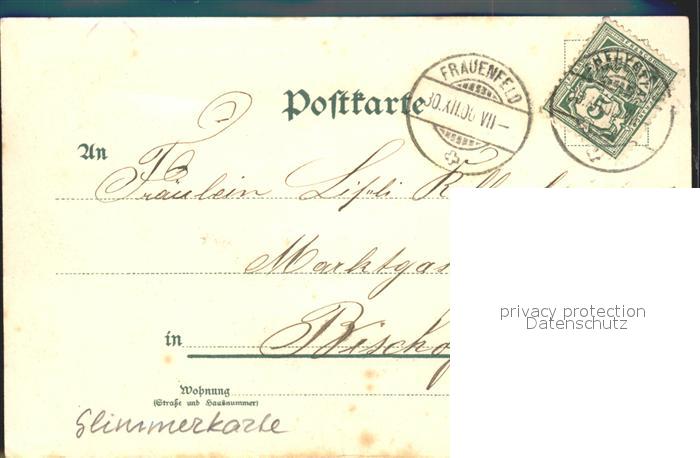 Postkarte
FRAUENFELD
30.XII.06 VII—
5
An
Fräulein
Marktgas
in Bischof
Wohnung
(Straße und Hausnummer)
Glimmerkarte
privacy protection
Datenschutz